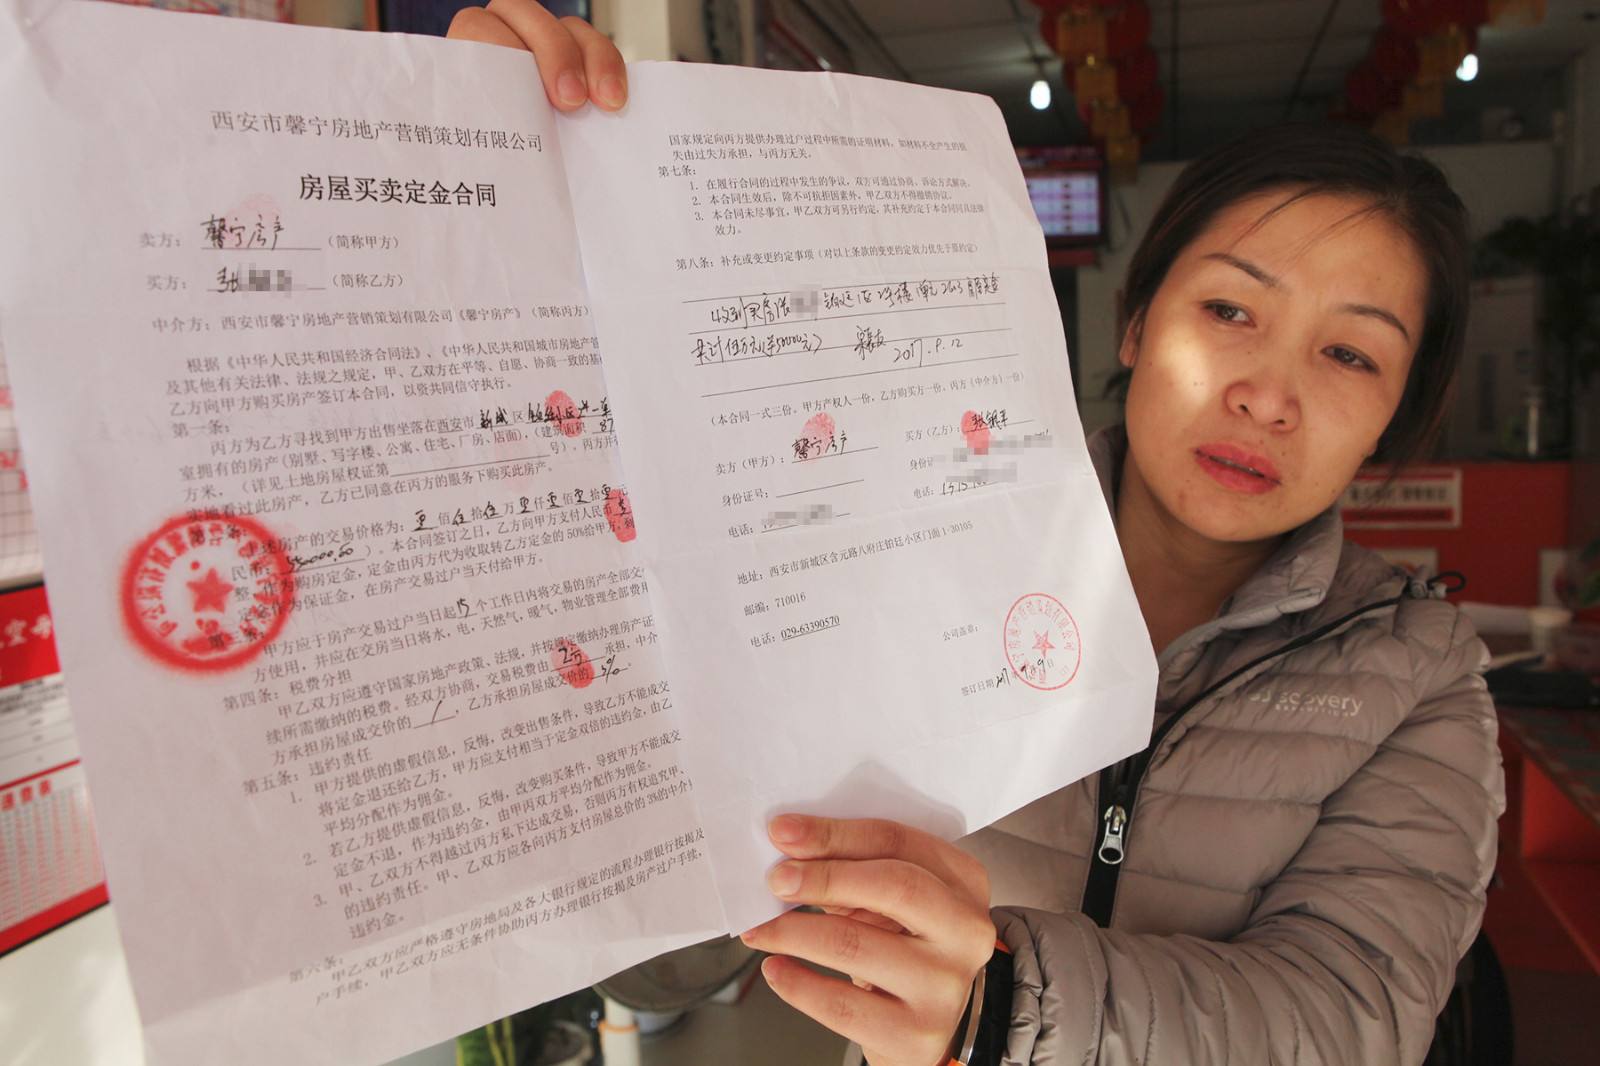 西安市馨宁房地产营销策划有限公司
房屋买卖定金合同
卖方：馨宁房产（简称甲方）
买方：张（简称乙方）
中介方：西安市馨宁房地产营销策划有限公司《馨宁房产》（简称丙方）
根据《中华人民共和国经济合同法》、《中华人民共和国城市房地产管
及其他有关法律、法规之规定，甲、乙双方在平等、自愿、协商一致的基
乙方向甲方购买房产签订本合同，以资共同信守执行。
第一条：
丙方为乙方寻找到甲方出售坐落在西安市新城区
室拥有的房产（别墅、写字楼、公寓、住宅、厂房、店面），（建筑面积 87
方米，（详见土地房屋权证第 号），丙方并
实地看过此房产，乙方已同意在丙方的服务下购买此房产。
第二条：
上述房产的交易价格为：零佰伍拾伍万零仟零佰零拾零元
民币：550000.00）。本合同签订之日，乙方向甲方支付人民币
整，作为购房定金，定金由丙方代为收取转乙方定金的50%给甲方，到
定金作为保证金，在房产交易过户当天付给甲方。
第三条：
甲方应于房产交易过户当日起15个工作日内将交易的房产全部交
方使用，并应在交房当日将水，电，天然气，暖气，物业管理全部费用
第四条：税费分担
甲乙双方应遵守国家房地产政策、法规，并按规定缴纳办理房产证
续所需缴纳的税费。经双方协商，交易税费由乙方承担，中介
方承担房屋成交价的 / ，乙方承担房屋成交价的
第五条：违约责任
1. 甲方提供的虚假信息，反悔，改变出售条件，导致乙方不能成交
将定金退还给乙方，甲方应支付相当于定金双倍的违约金，由乙
平均分配作为佣金。
2. 若乙方提供虚假信息，反悔，改变购买条件，导致甲方不能成交
定金不退，作为违约金，由甲丙双方平均分配作为佣金。
3. 甲、乙双方不得越过丙方私下达成交易，否则丙方有权追究甲、
的违约责任。甲、乙双方应各向丙方支付房屋总价的3%的中介
违约金。
第六条：
甲乙双方应严格遵守房地局及各大银行规定的流程办理银行按揭及
户手续，甲乙双方应无条件协助丙方办理银行按揭及房产过户手续，
国家规定向丙方提供办理过户过程中所需的证明材料，如材料不全产生的损
失由过失方承担，与丙方无关。
第七条：
1. 在履行合同的过程中发生的争议，双方可通过协商、诉讼方式解决。
2. 本合同生效后，除不可抗拒因素外，甲乙双方不得撤销协议。
3. 本合同未尽事宜，甲乙双方可另行约定，其补充约定于本合同同具法律
效力。
第八条：补充或变更约定事项（对以上条款的变更约定效力优先于原约定）
收到买房张
共计伍万元（￥50000元） 2017.9.12
（本合同一式三份。甲方产权人一份，乙方购买方一份，丙方（中介方）一份）
卖方（甲方）：馨宁房产
买方（乙方）：
身份证号：
身份证
电话：
电话：
地址：西安市新城区含元路八府庄铂廷小区门面1-30105
邮编：710016
电话：029-63390570
公司盖章：
签订日期 2017年9月9日
Discovery
EXPEDITION